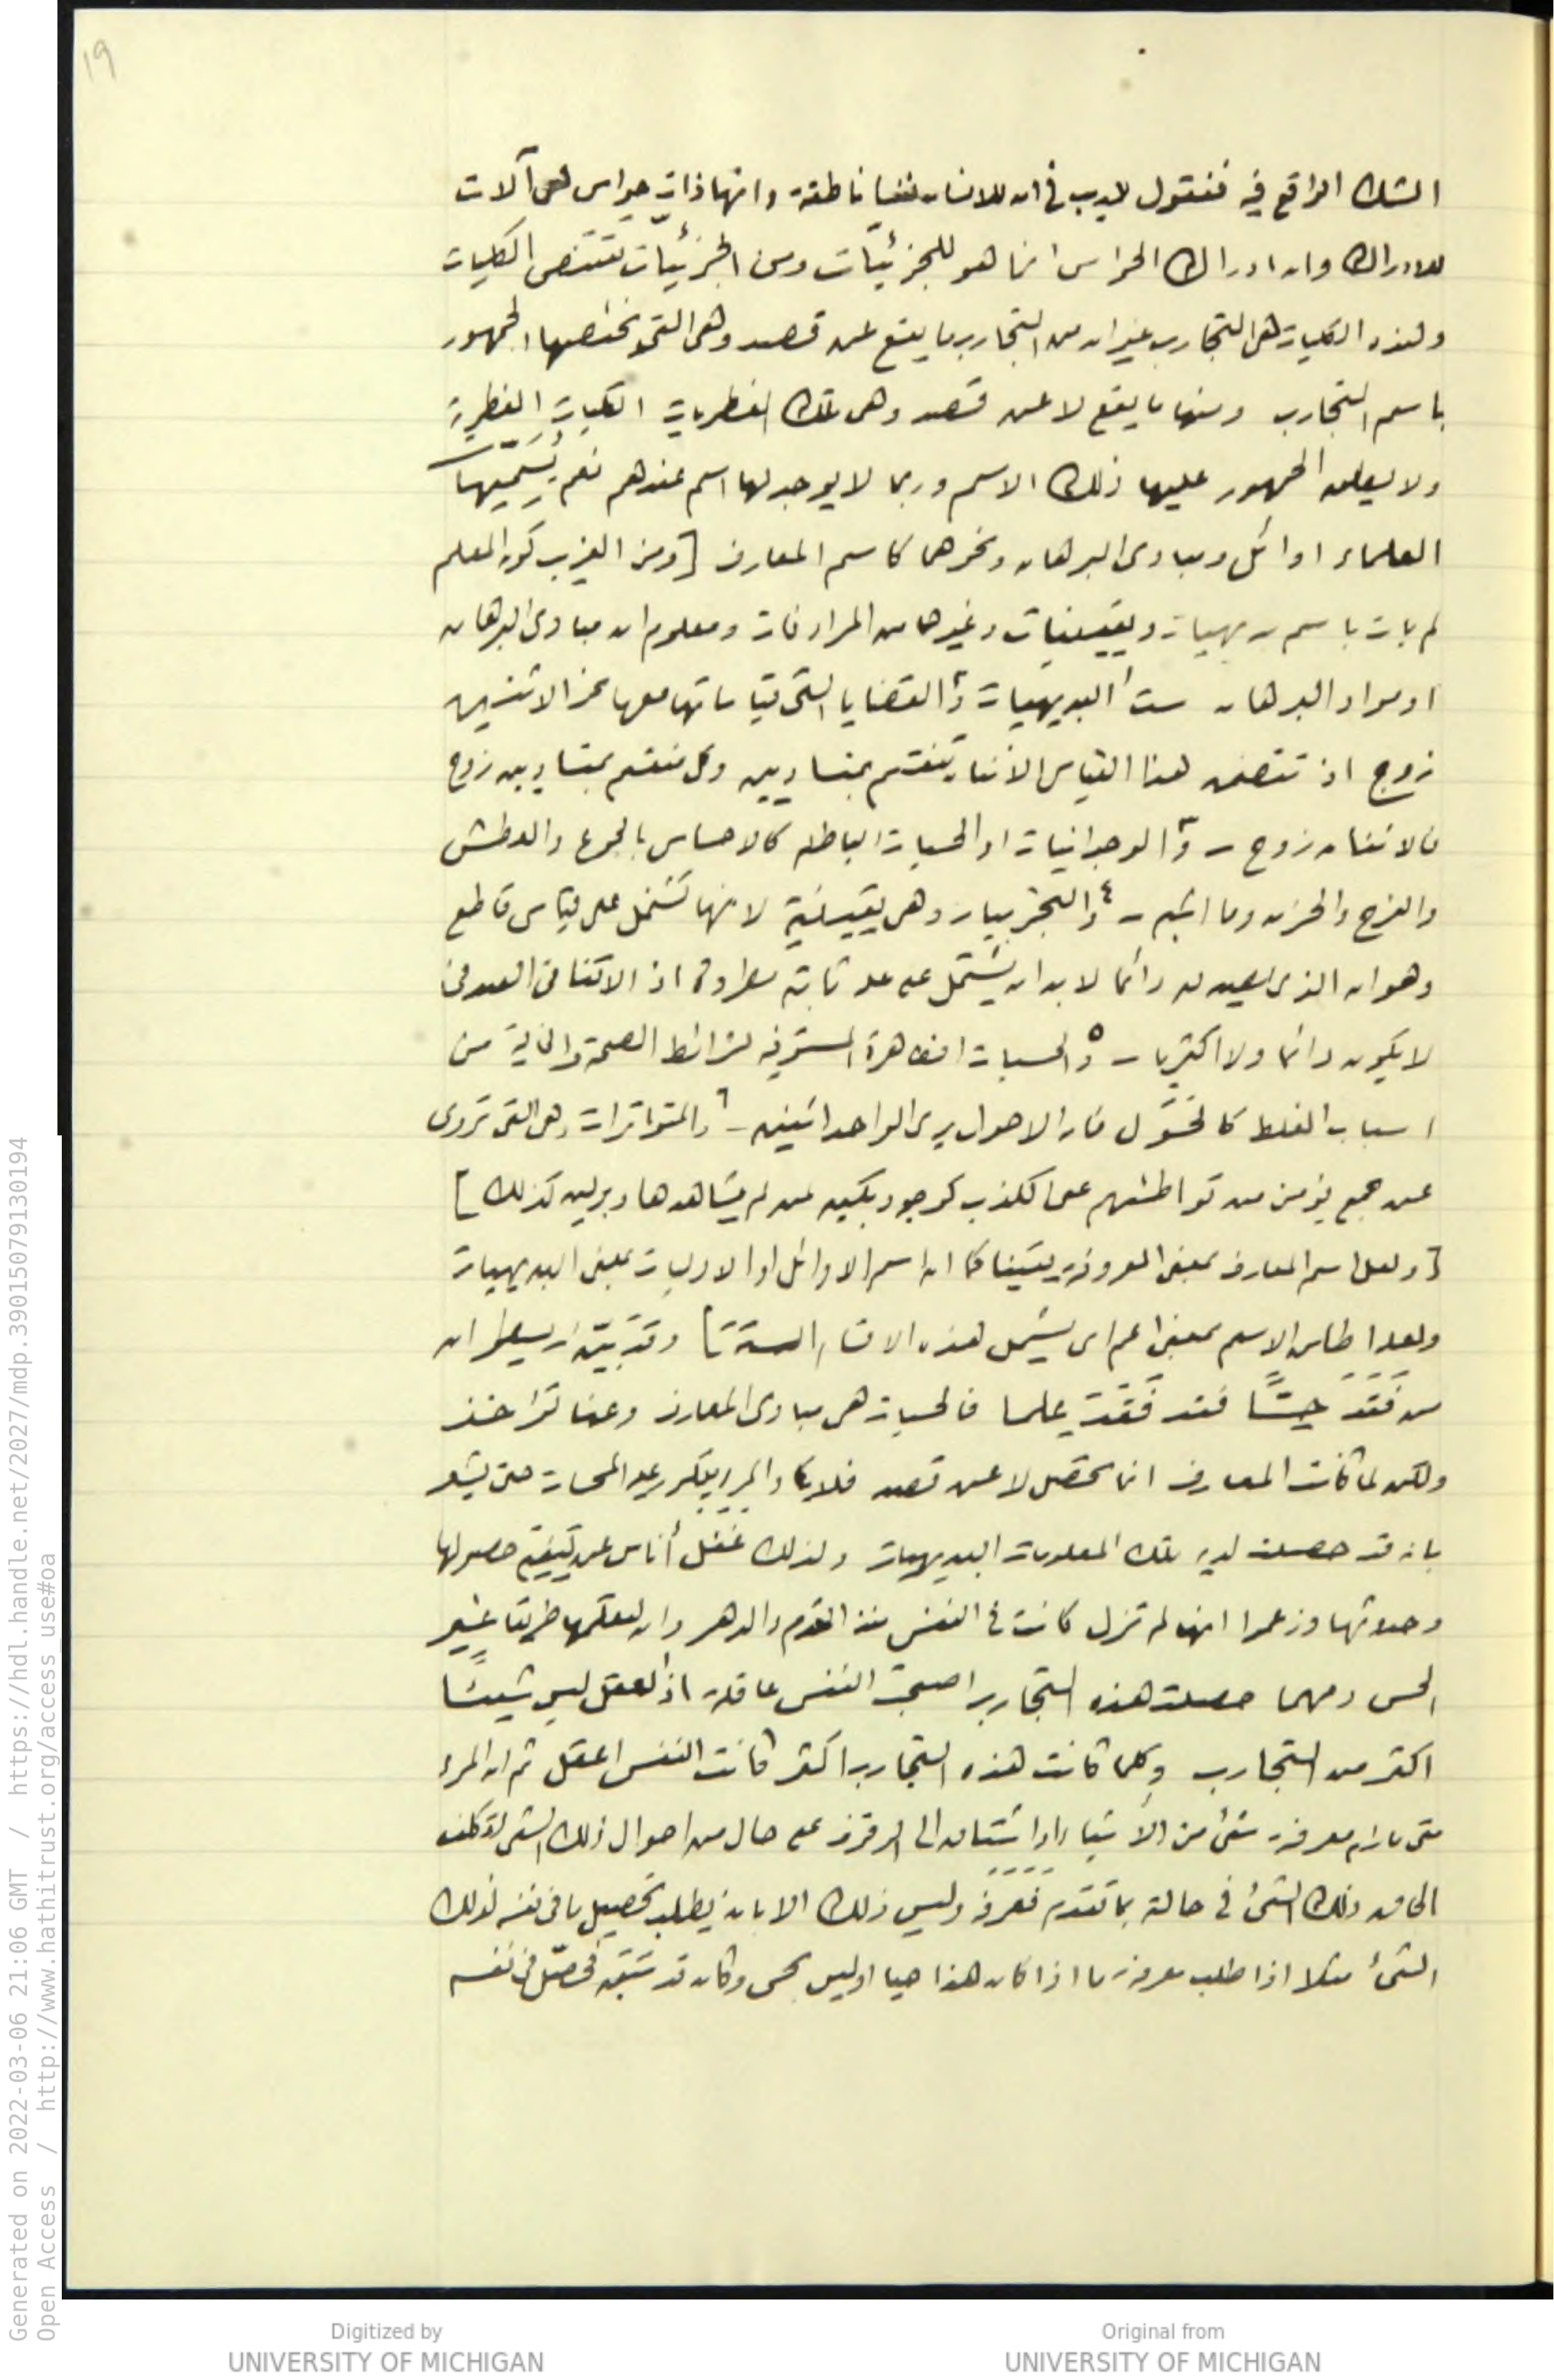 ١٩
الشك الواقع فيه فنقول لاريب في ان للانسان نفسا ناطقة وانها ذات حواس هى آلات
للادراك وان ادراك الحواس انما هو للجزئيّات ومن الجزئيّات تقتنص الكليات
وهذه الكليات هى التجارب غير ان من التجارب ما يقع عن قصد وهى التى يختصها الجمهور
باسم التجارب ومنها ما يقع لا عن قصد وهى تلك الفطريات الكليات الفطرية
ولا يطلق الجمهور عليها ذلك الاسم وربما لا يوجد لها اسم عندهم نعم يُسَمّيها
العلماء اوائل ومبادى البرهان ونحوهما كاسم المعارف [ومن الغريب كون المعلم
لم يات باسم بديهيات ويقينيات وغيرها من المرادفات ومعلوم ان مبادى البرهان
او مواد البرهان ست ١ البديهيات ٢ والقضايا التى قياساتها معها نحو الاثنين
زوج اذ تتضمن هذا القياس الاثنان تنقسم بمتساويين وكل منقسم بمتساويين زوج
فالاثنان زوج – ٣ والوجدانيات او الحسيات الباطنة كالاحساس بالجوع والعطش
والفرح والحزن وما اشبه – ٤ والتجربيات وهى يقينية لانها تشتمل على قياس قاطع
وهو ان الذى دائما لا بد ان يشتمل على علة ثابتة مطردة اذ الاتفاقى
لا يكون دائما ولا اكثريا – ٥ والحسيات الظاهرة المستوفية لشرائط الصحة والخالية من
اسباب الغلط كالحَوَل فان الاحول يرى الواحد اثنين – ٦ والمتواترات وهى التى تروى
عن جمع يؤمن من تواطئهم على الكذب كوجود بكين لمن لم يشاهدها وبرلين كذلك]
[ولعل اسم المعارف بمعنى المعروفة يقينا كما ان اسم الاوائل او الاوليات بمعنى البديهيات
ولعله اطلق الاسم بمعنى اعم اى يشمل هذه الاقسام الستة] وقد بيّن ارسطو ان
من فَقَدَ حِسًّا فقد فَقَدَ علما فالحسيات هى مبادى المعارف وعنها تؤخذ
ولكن لما كانت المعارف انما تحصل لا عن قصد فلا يكاد المرء حتى يشعر
بانه قد حصلت لديه تلك المعلومات البديهيات ولذلك غَفَل أناس عن كيفية حصولها
وحدوثها وزعموا انها لم تزل كانت في النفس منذ القدم والدهر وان لعلمها طريقا غير
الحس ومهما حصلت هذه التجارب اصبحت النفس عاقلة اذ العقل ليس شيئًا
اكثر من التجارب وكلما كانت هذه التجارب اكثر كانت النفس اعقل ثم ان المرء
متى رام معرفة شئ من الاشياء او اشتاق الى الوقوف على حال من احوال ذلك الشئ تكلف
الحاق ذلك الشئ في حالة بما تقدم فعرفه وليس ذلك الا بان يطلب تحصيل ما في نفسه لذلك
الشئ مثلا اذا طلب معرفة ما اذا كان هذا حيا او ليس بحى وكان قد سبق فحصّل في نفسه
Generated on 2022-03-06 21:06 GMT / https://hdl.handle.net/2027/mdp.39015079130194
Open Access / http://www.hathitrust.org/access_use#oa
Digitized by
UNIVERSITY OF MICHIGAN
Original from
UNIVERSITY OF MICHIGAN